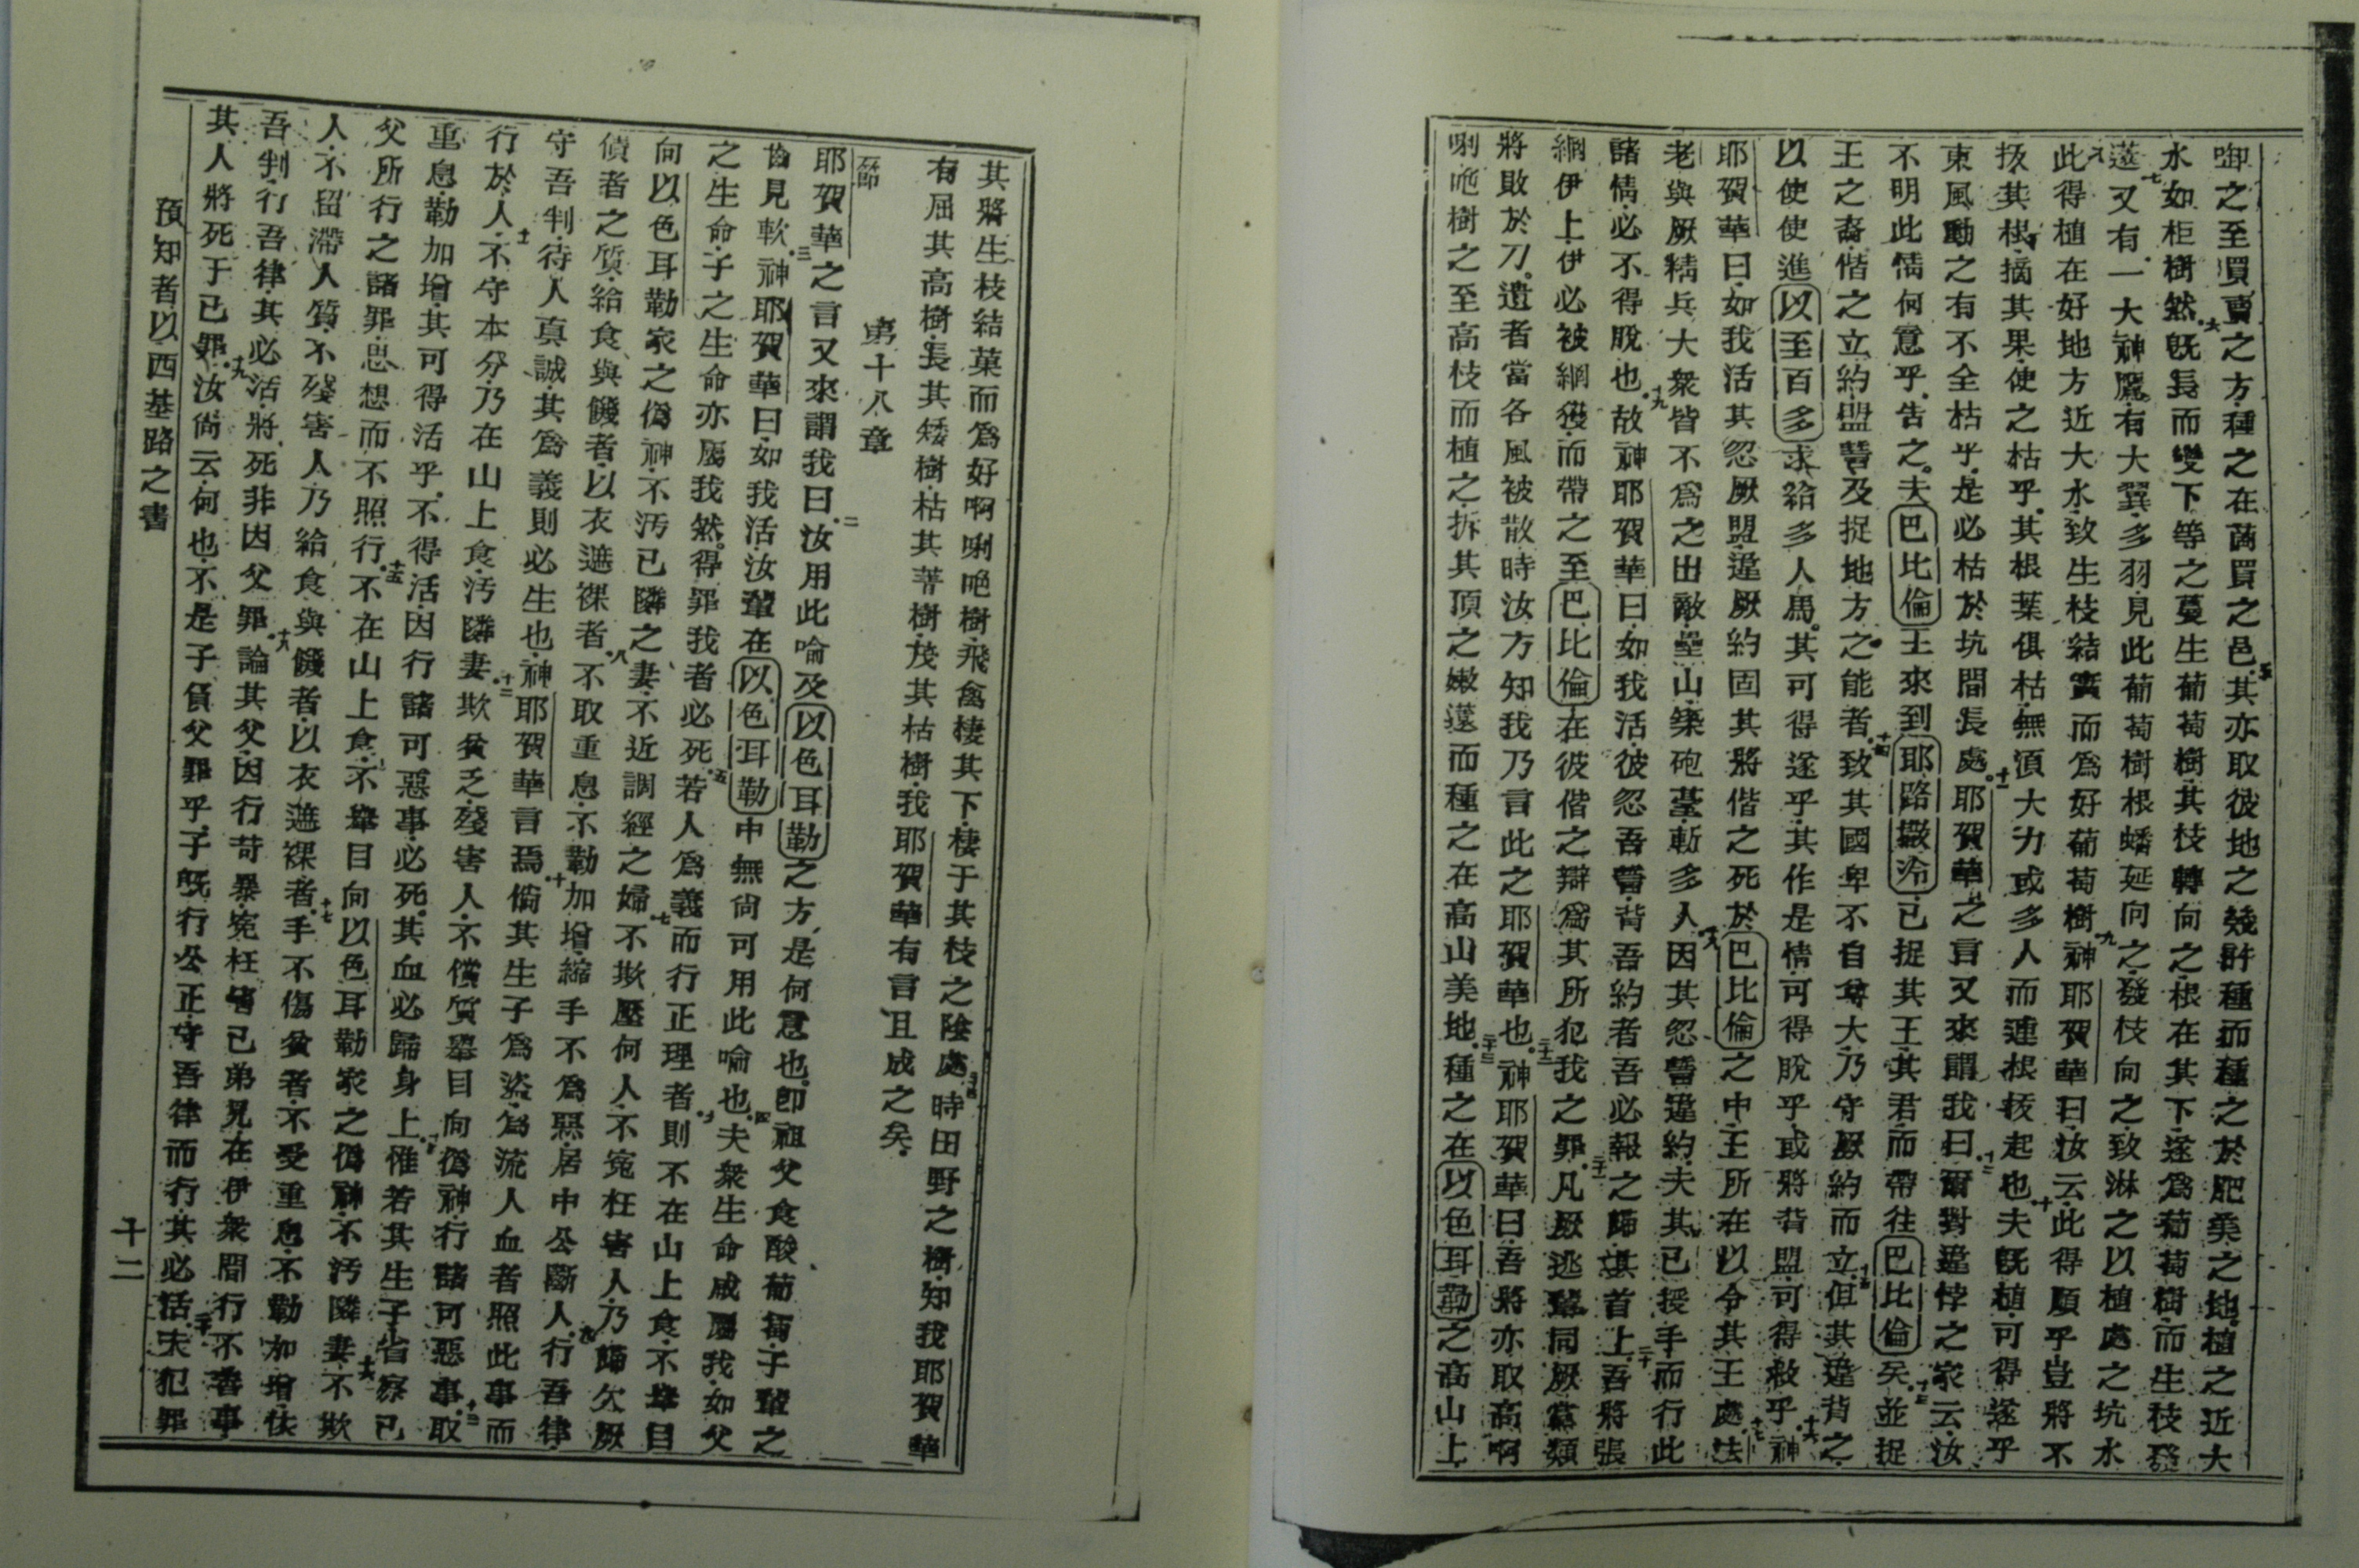 啣之至買賣之方種之在啇買之邑五其亦取彼地之幾許種而種之於肥美之地植之近大
水如柜樹然六旣長而變下等之蔓生葡萄樹其枝轉向之根在其下遂爲葡萄樹而生枝發
蓬七又有一大神鷹有大翼多羽見此葡萄樹根蟠延向之發枝向之致淋之以植處之坑水
八此得植在好地方近大水致生枝結實而爲好葡萄樹九神耶賀華曰汝云此得順乎豈將不
拔其根摘其果使之枯乎其根葉俱枯無須大力或多人而連根拔起也十夫旣植可得遂乎
東風動之有不全枯乎是必枯於坑間長處十一耶賀華之言又來謂我曰十二爾對違悖之家云汝
不明此情何意乎告之夫巴比倫王來到耶路撒冷已捉其王其君而帶往巴比倫矣十三並捉
王之裔偕之立約盟誓及捉地方之能者十四致其國卑不自尊大乃守厥約而立十五但其違背之
以使使進以至百多求給多人馬其可得遂乎其作是情可得脫乎或將背盟可得赦乎十六神
耶賀華曰如我活其忽厥盟違厥約固其將偕之死於巴比倫之中王所在以令其王處十七法
老與厥精兵大衆皆不爲之出敵壘山築砲臺斬多人十八因其忽誓違約夫其已授手而行此
諸情必不得脫也十九故神耶賀華曰如我活彼忽吾誓背吾約者吾必報之歸其首上二十吾將張
網伊上伊必被網獲而帶之至巴比倫在彼偕之辯爲其所犯我之罪二十一凡厥逃輩同厥黨類
將敗於刀遺者當各風被散時汝方知我乃言此之耶賀華也二十二神耶賀華曰吾將亦取高啊
唎吔樹之至高枝而植之拆其頂之嫩蓬而種之在高山美地二十三種之在以色耳勒之高山上
其將生枝結菓而爲好啊唎吔樹飛禽棲其下棲于其枝之陰處二十四時田野之樹知我耶賀華
有屈其高樹長其矮樹枯其菁樹茂其枯樹我耶賀華有言且成之矣
第十八章
一節
耶賀華之言又來謂我曰二汝用此喻及以色耳勒之方是何意也卽祖父食酸葡萄子輩之
齒見軟三神耶賀華曰如我活汝輩在以色耳勒中無尙可用此喻也四夫衆生命咸屬我如父
之生命子之生命亦屬我然得罪我者必死五若人爲義而行正理者六則不在山上食不舉目
向以色耳勒家之僞神不汚已隣之妻不近調經之婦七不欺壓何人不寃枉害人乃歸欠厥
債者之質給食與饑者以衣遮裸者八不取重息不勒加增縮手不爲惡居中公斷人九行吾律
守吾判待人真誠其爲義則必生也神耶賀華言焉十倘其生子爲盜爲流人血者照此事而
行於人十一不守本分乃在山上食汚隣妻十二欺貧乏殘害人不償質舉目向僞神行諸可惡事十三取
重息勒加增其可得活乎不得活因行諸可惡事必死其血必歸身上十四惟若其生子省察已
父所行之諸罪思想而不照行十五不在山上食不舉目向以色耳勒家之僞神不汚隣妻十六不欺
人不留滯人質不殘害人乃給食與饑者以衣遮裸者十七手不傷貧者不受重息不勒加增依
吾判行吾律其必活將死非因父罪十八論其父因行苛暴寃枉害已弟兄在伊衆間行不善事
其人將死于已罪十九汝尙云何也不是子負父罪乎子旣行公正守吾律而行其必活二十夫犯罪
預知者以西基路之書
十二